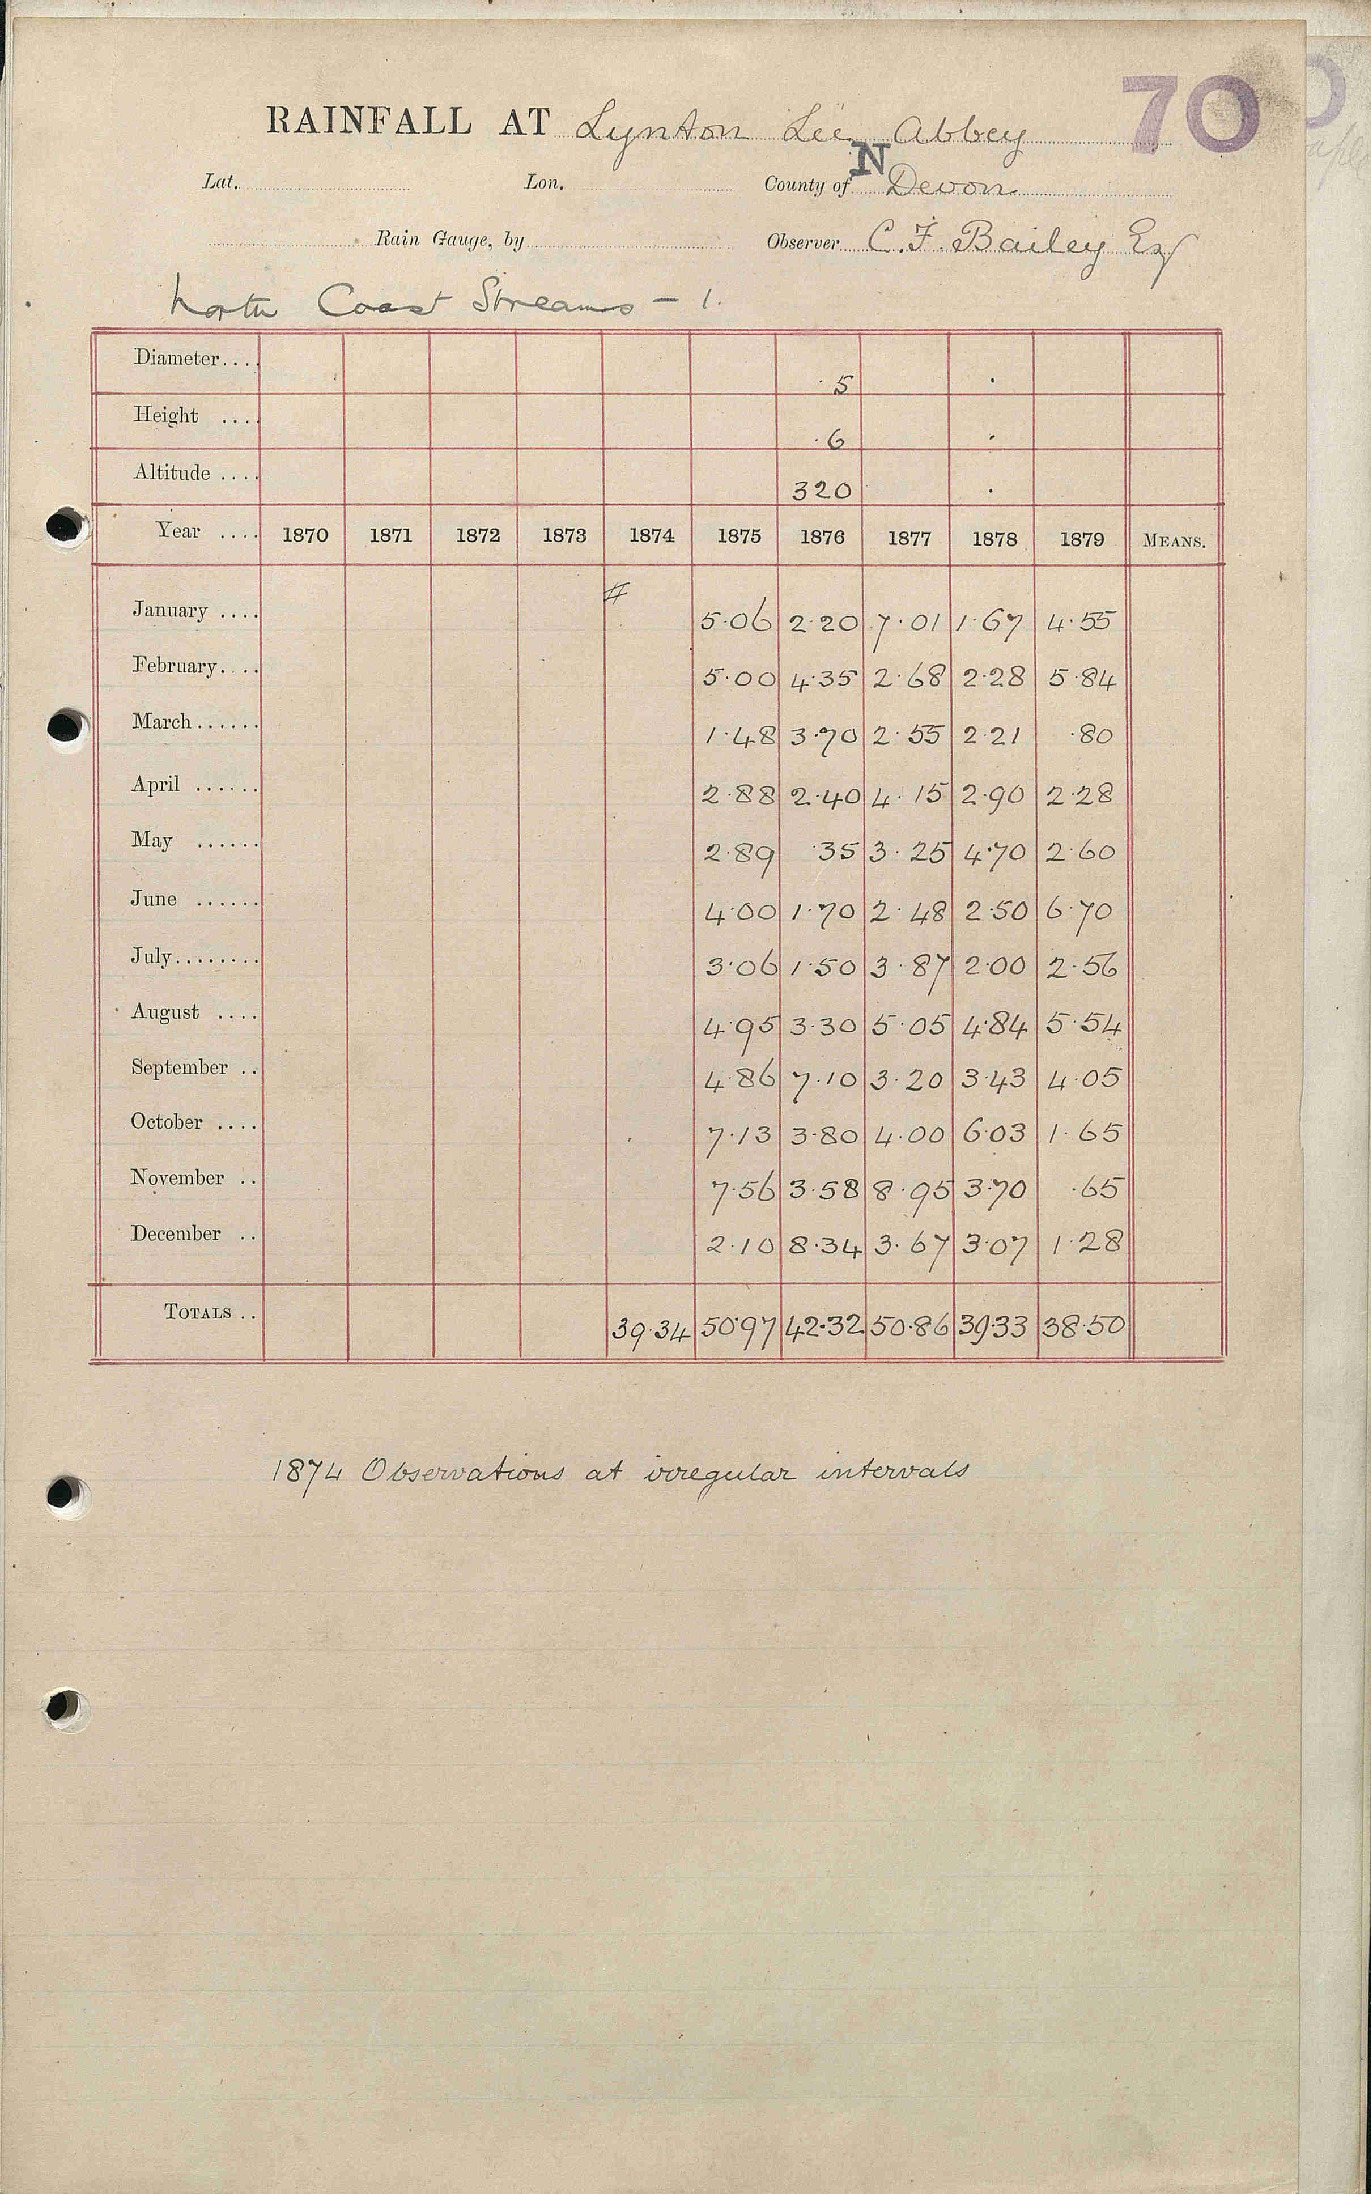 70
RAINFALL AT Lynton Lee Abbey
Lat. Lon. County of N Devon
Rain Gauge, by Observer C. F. Bailey Esq
North Coast Streams - 1.
Diameter.... 5 .
Height .... .6 .
Altitude .... 320 .
Year .... 1870 1871 1872 1873 1874 1875 1876 1877 1878 1879 MEANS.
January .... # 5.06 2.20 7.01 1.67 4.55
February.... 5.00 4.35 2.68 2.28 5.84
March...... 1.48 3.70 2.55 2.21 .80
April ...... 2.88 2.40 4.15 2.90 2.28
May ...... 2.89 .35 3.25 4.70 2.60
June ...... 4.00 1.70 2.48 2.50 6.70
July........ 3.06 1.50 3.87 2.00 2.56
August .... 4.95 3.30 5.05 4.84 5.54
September .. 4.86 7.10 3.20 3.43 4.05
October .... 7.13 3.80 4.00 6.03 1.65
November .. 7.56 3.58 8.95 3.70 .65
December .. 2.10 8.34 3.67 3.07 1.28
TOTALS .. 39.34 50.97 42.32 50.86 39.33 38.50
1874 Observations at irregular intervals